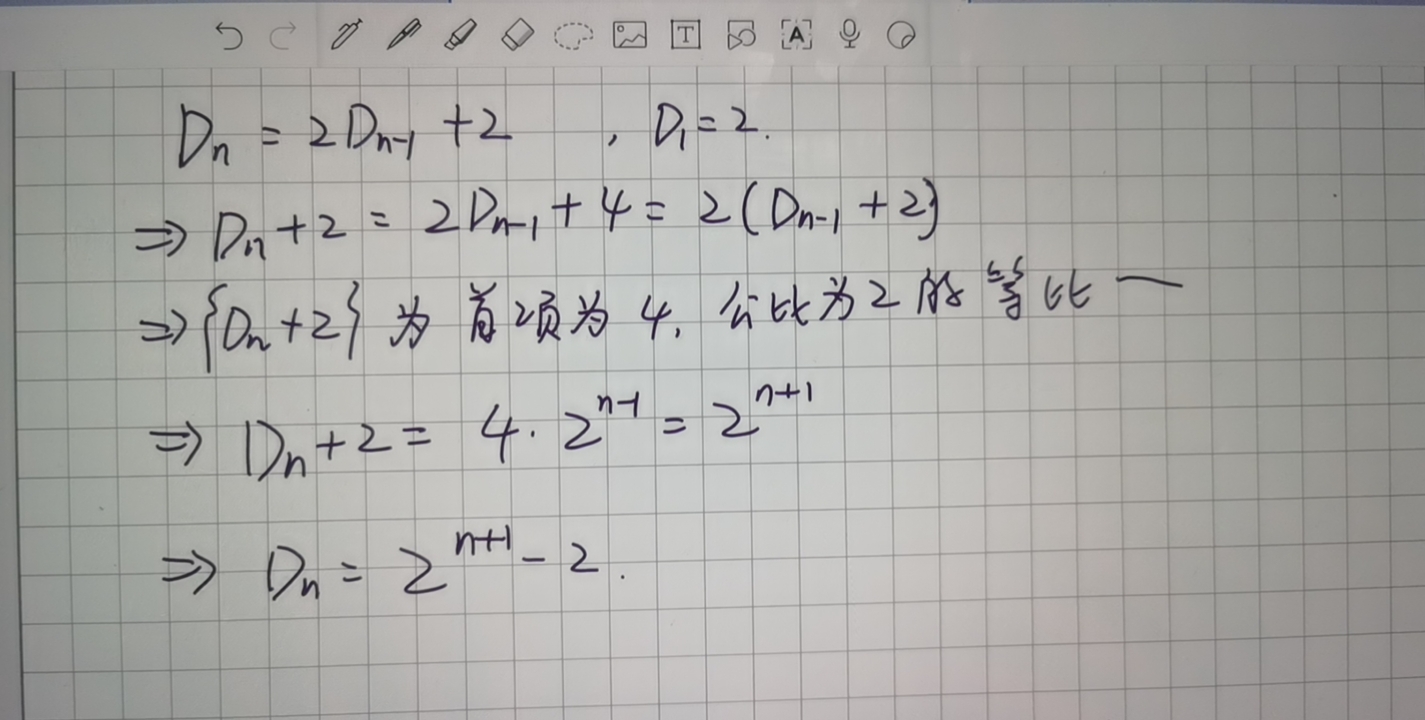 Dₙ = 2Dₙ₋₁ + 2 , D₁ = 2.
⇒ Dₙ + 2 = 2Dₙ₋₁ + 4 = 2(Dₙ₋₁ + 2)
⇒ {Dₙ + 2} 为首项为 4, 公比为 2 的等比一
⇒ Dₙ + 2 = 4 · 2ⁿ⁻¹ = 2ⁿ⁺¹
⇒ Dₙ = 2ⁿ⁺¹ - 2.